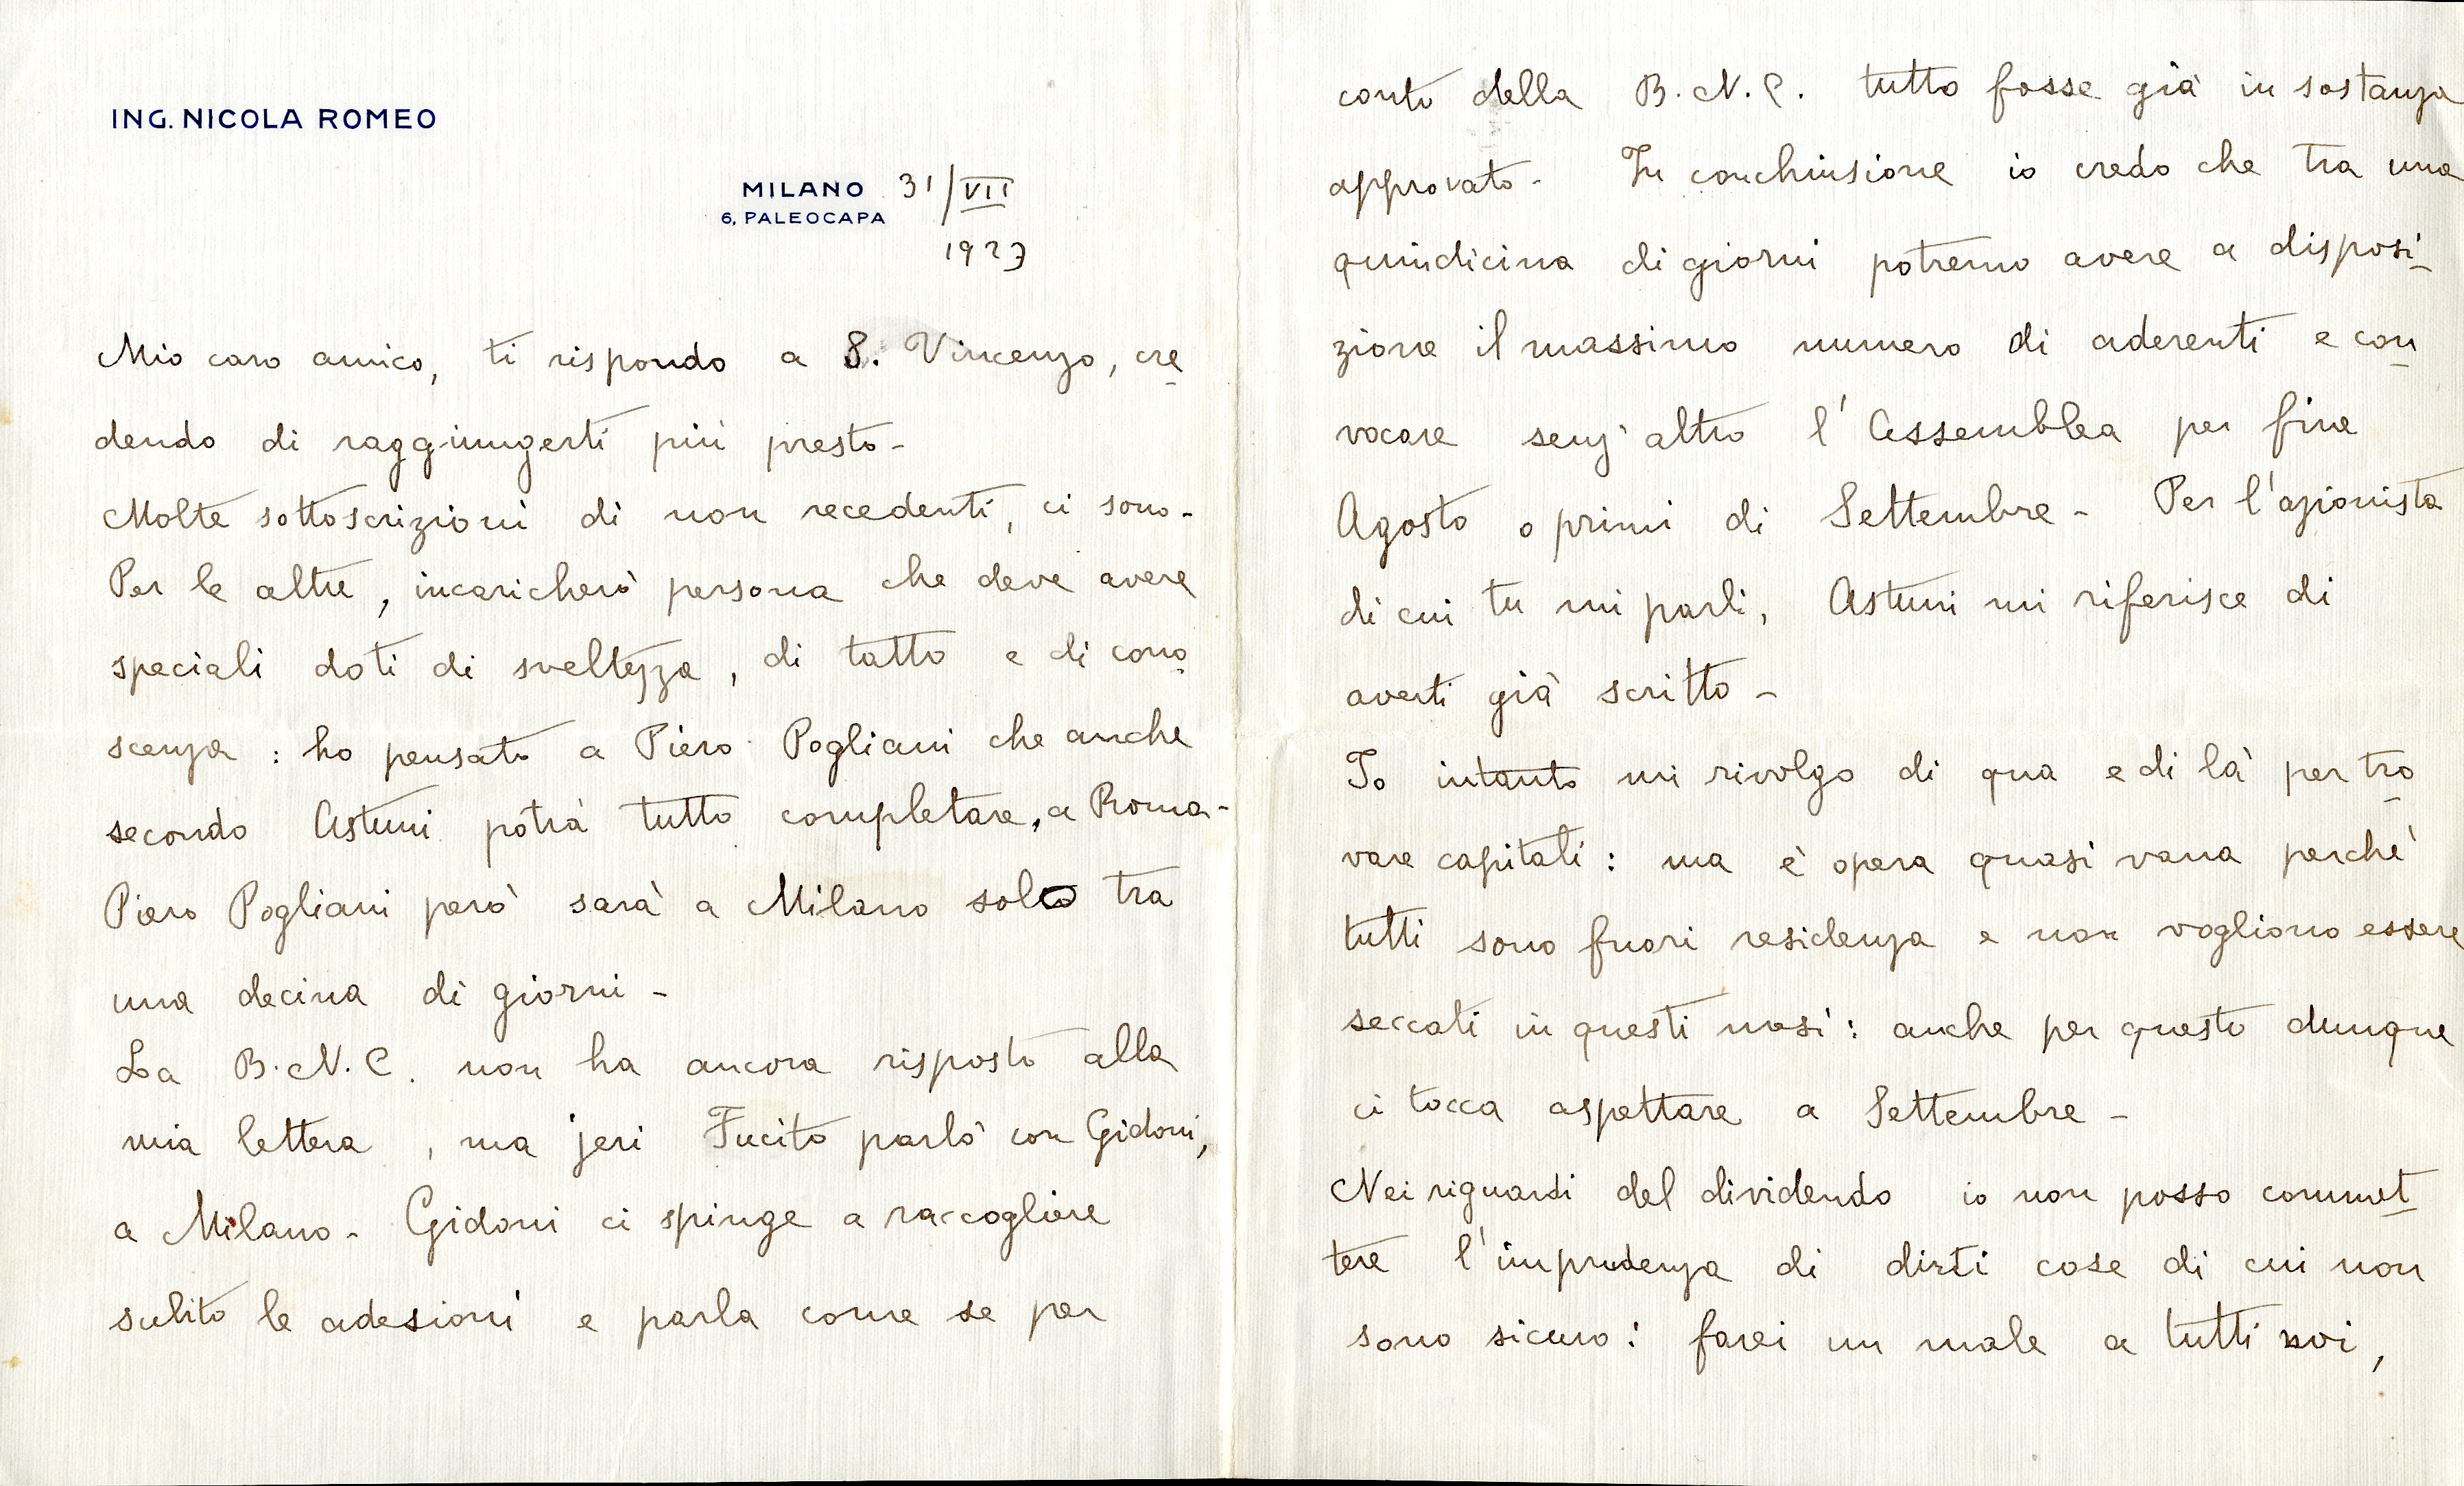 ING. NICOLA ROMEO
MILANO 31/VII
6, PALEOCAPA
1923
Mio caro amico, ti rispondo a S. Vincenzo, cre
dendo di raggiungerti più presto -
Molte sottoscrizioni di non recedenti, ci sono -
Per le altre, incaricherò persona che deve avere
speciali doti di sveltezza, di tatto e di cono
scenza : ho pensato a Piero Pogliani che anche
secondo Astuni potrà tutto completare, a Roma -
Piero Pogliani però sarà a Milano solo tra
una decina di giorni -
La B. N. C. non ha ancora risposto alla
mia lettera , ma jeri Fucito parlò con Gidoni,
a Milano - Gidoni ci spinge a raccogliere
subito le adesioni e parla come se per
conto della B. N. C. tutto fosse già in sostanza
approvato - In conchiusione io credo che tra una
quindicina di giorni potremo avere a disposi
zione il massimo numero di aderenti e con
vocare senz'altro l'Assemblea per fine
Agosto o primi di Settembre - Per l'azionista
di cui tu mi parli, Astuni mi riferisce di
averti già scritto -
Io intanto mi rivolgo di qua e di là per tro
vare capitali : ma è opera quasi vana perchè
tutti sono fuori residenza e non vogliono essere
seccati in questi mesi : anche per questo dunque
ci tocca aspettare a Settembre -
Nei riguardi del dividendo io non posso commet
tere l'imprudenza di dirti cose di cui non
sono sicuro : farei un male a tutti noi,